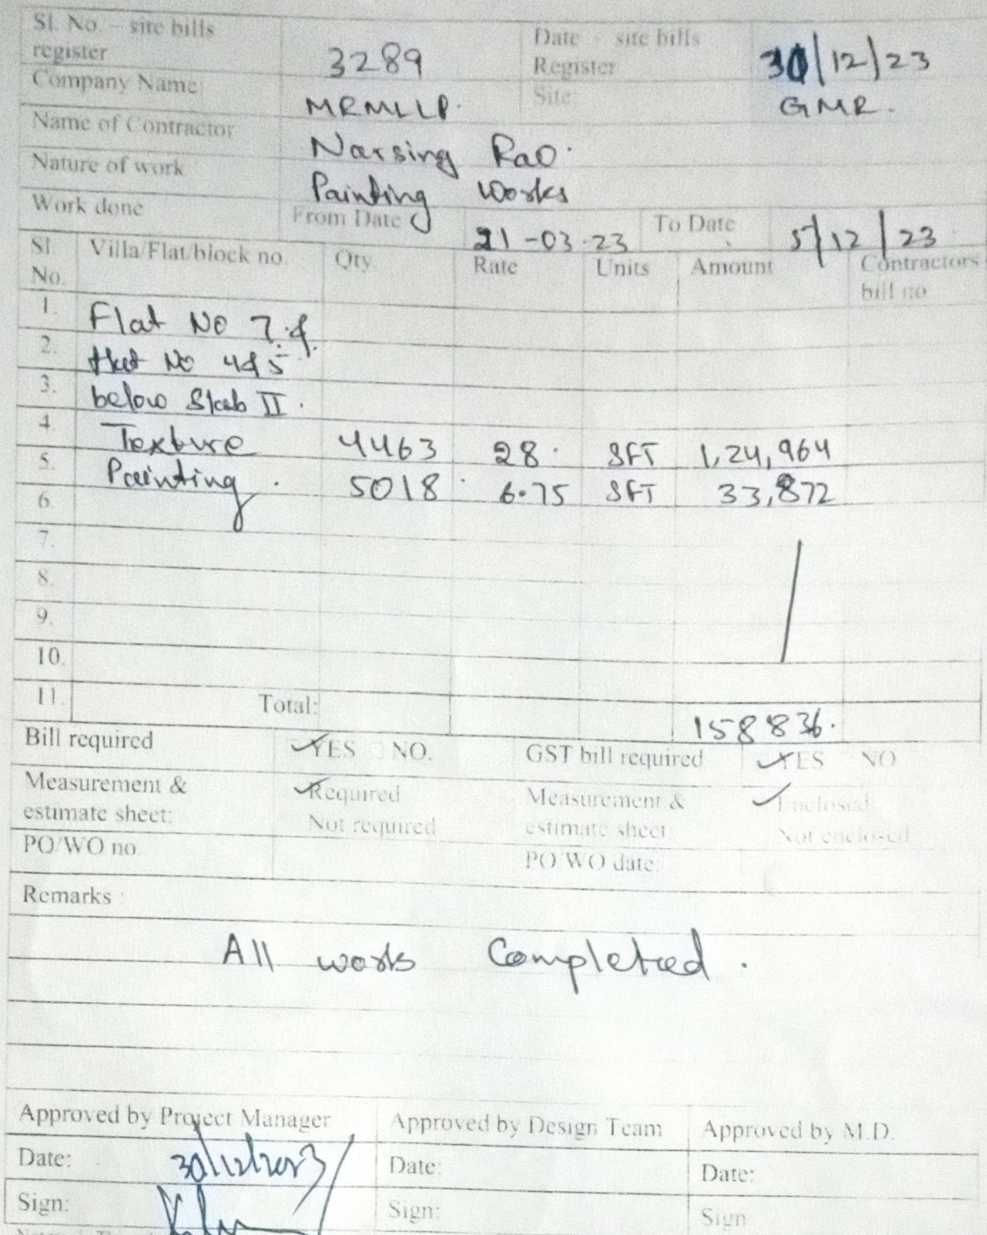 Sl. No. – site bills register 3289 Date - site bills Register 30/12/23
Company Name: MRMLLP. Site: GMR.
Name of Contractor Narsing Rao.
Nature of work Painting works
Work done From Date 21-03-23 To Date 5/12/23
Sl No. Villa/Flat/block no. Qty Rate Units Amount Contractors bill no
1. Flat No 7.f.
2. flat No 4&5
3. below Slab II.
4. Texture 4463 28. SFT 1,24,964
5. Painting. 5018 6.75 SFT 33,872
6.
7.
8.
9.
10.
11. Total: 158836.
Bill required YES NO. GST bill required YES NO
Measurement & estimate sheet: Required Not required Measurement & estimate sheet Enclosed Not enclosed
PO/WO no. PO/WO date:
Remarks :
All works Completed.
Approved by Project Manager Approved by Design Team Approved by M.D.
Date: 30/12/2023 Date: Date:
Sign: Sign: Sign